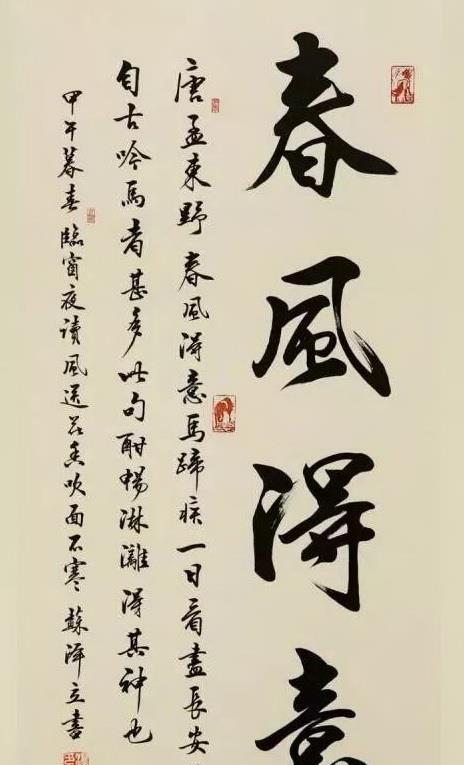 春風得意
唐孟東野春風得意馬蹄疾一日看盡長安
自古吟馬者甚多此句酣暢淋灕得其神也
甲午暮春臨窗夜讀風送花香吹面不寒蘇澤立書